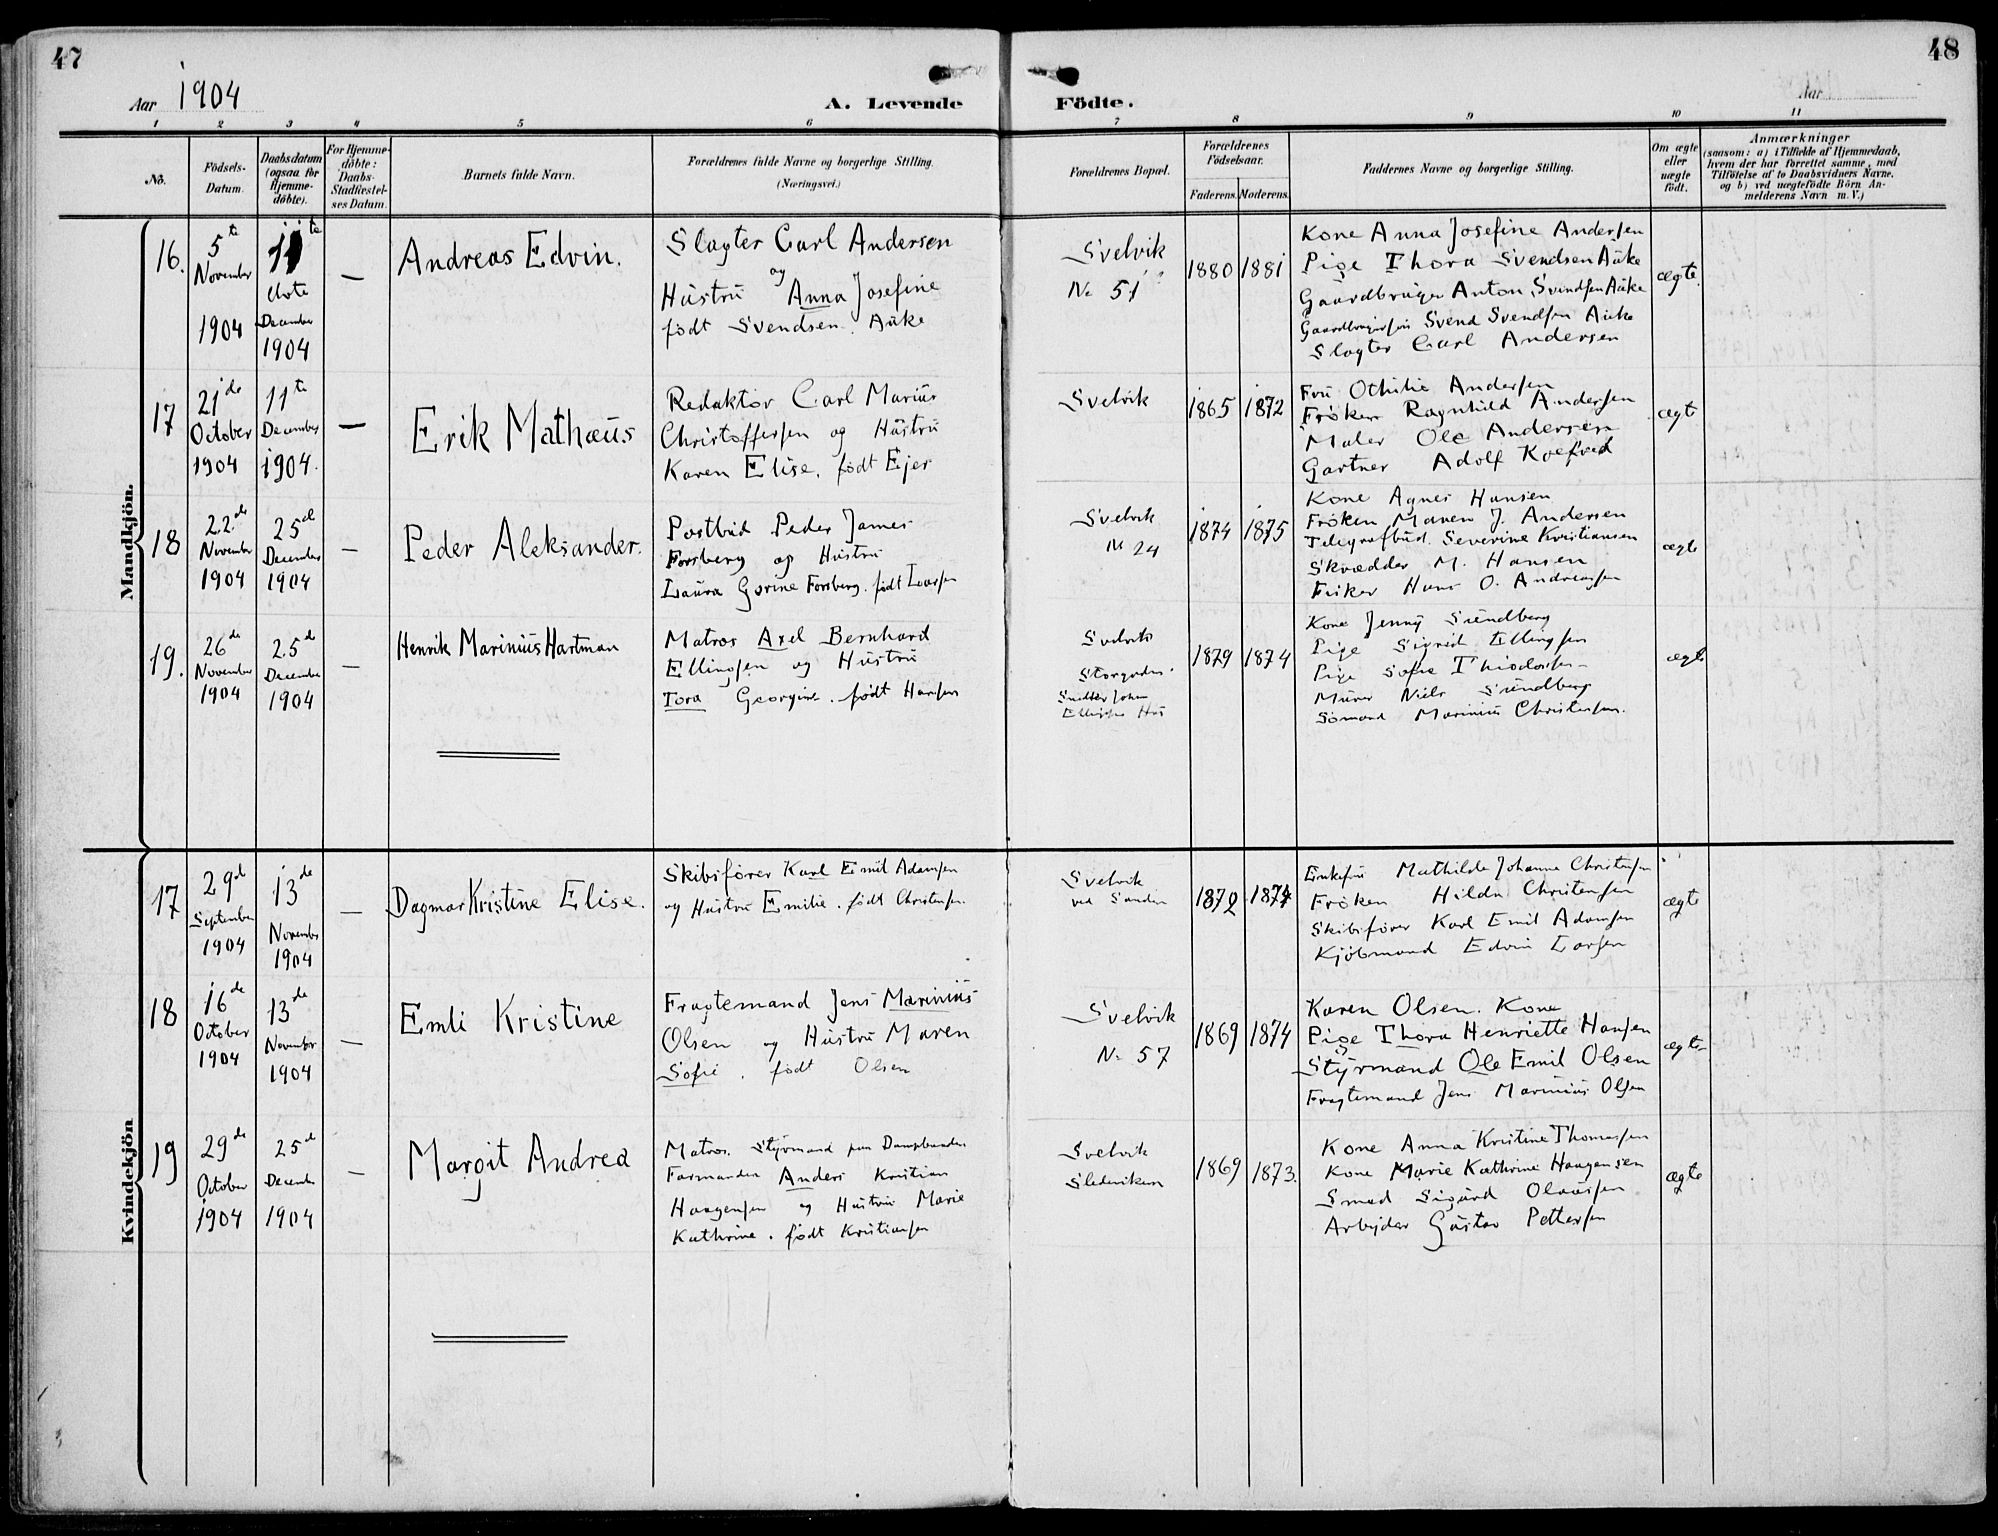 47
48
Aar 1904
A. Levende Födte.
Aar
1 2 3 4 5 6 7 8 9 10 11
No.
Födsels-
Datum.
Daabsdatum
(ogsaa for
Hjemme-
döbte).
For Hjemme-
döbte:
Daabs-
Stadfæstel-
ses Datum.
Barnets fulde Navn.
Forældrenes fulde Navne og borgerlige Stilling.
(Næringsvei.)
Forældrenes Bopæl.
Forældrenes
Födselsaar.
Faderens. Moderens.
Faddernes Navne og borgerlige Stilling.
Om ægte
eller
uægte
födt.
Anmærkninger
(saasom: a) i Tilfælde af Hjemmedaab,
hvem der har forrettet samme, med
Tilföielse af to Daabsvidners Navne,
og b) ved uægtefödte Börn An-
melderens Navn m. V.)
Mandkjön.
16.
5te
November
1904
11te
December
1904
—
Andreas Edvin.
Slagter Carl Andersen
og
Hustru Anna Josefine
født Svendsen. Auke
Svelvik
No 51
1880
1881
Kone Anna Josefine Andersen
Pige Thora Svendsen Auke
Gaardbruger Anton Svendsen Auke
Svend Svendsen Auke
Slagter Carl Andersen
ægte.
17
21de
October
1904
11te
December
1904.
—
Erik Mathæus
Redaktør Carl Marius
Christoffersen og Hustru
Karen Elise. født Ejer
Svelvik
1865
1872
Fru Othilie Andersen
Frøken Ragnhild Andersen
Maler Ole Andersen
Gartner Adolf
ægte
18
22de
November
1904
25de
December
1904
—
Peder Aleksander.
Postbud Peder James
Forsberg og Hustru
Laura Gorine Forsberg. født Larsen
Svelvik
No 24
1874
1875
Kone Agnes Hansen
Frøken Maren J. Andersen
Telegrafbud. Severine Kristiansen
Skrædder M. Hansen
Fisker Hans O. Andreassen
ægte
19.
26de
November
1904
25de
December
1904
—
Henrik Marinius Hartman
Matros Axel Bernhard
Ellingsen og Hustru
Tora Georgine. født Hansen
Svelvik
Storgaden
Johan
Ellingsens Hus
1879
1874
Kone Jenny Sundberg
Pige Sigrid Ellingsen
Pige Sofie
Murer Niels Sundberg
Sømand Marinius Christensen.
ægte
Kvindekjön
17
29de
September
1904
13de
November
1904
—
Dagmar Kristine Elise.
Skibsfører Karl Emil Adamsen
og Hustru Emilie. født Christensen.
Svelvik
ved Sanden
1872
1874
Enkefru Mathilde Johanne Christensen
Frøken Hilda Christensen
Skibsfører Karl Emil Adamsen
Kjøbmand Edvin Larsen
ægte
18
16de
October
1904
13de
November
1904
—
Emli Kristine
Fragtemand Jens Marinius
Olsen og Hustru Maren
Sofie. født Olsen
Svelvik
No 57
1869
1874
Karen Olsen. Kone
Pige Thora Henriette Hansen
Styrmand Ole Emil Olsen
Fragtemand Jens Marinius Olsen
ægte
19
29de
October
1904
25de
December
1904
—
Margit Andrea
Matros. Styrmand paa
Anders Kristian
Haagensen og Hustru Marie
Kathrine. født Kristiansen
Svelvik
1869
1873.
Kone Anna Kristine Thomassen
Kone Marie Kathrine Haagensen
Smed Sigurd Olaussen
Arbejder Gustav Pettersen
ægte